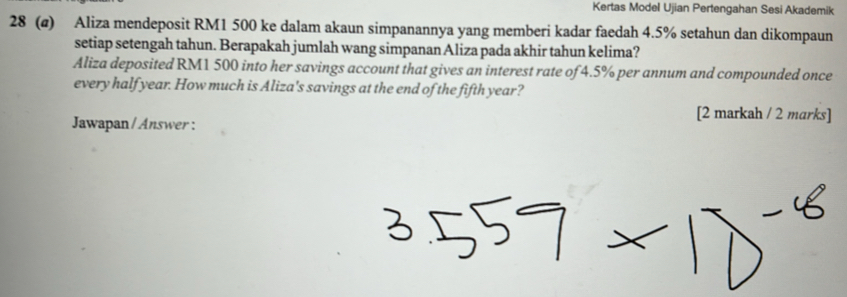 Kertas Model Ujian Pertengahan Sesi Akademik
28 (a) Aliza mendeposit RM1 500 ke dalam akaun simpanannya yang memberi kadar faedah 4.5% setahun dan dikompaun
setiap setengah tahun. Berapakah jumlah wang simpanan Aliza pada akhir tahun kelima?
Aliza deposited RM1 500 into her savings account that gives an interest rate of 4.5% per annum and compounded once
every half year. How much is Aliza's savings at the end of the fifth year?
[2 markah / 2 marks]
Jawapan / Answer :
3.559 × 10⁻⁸